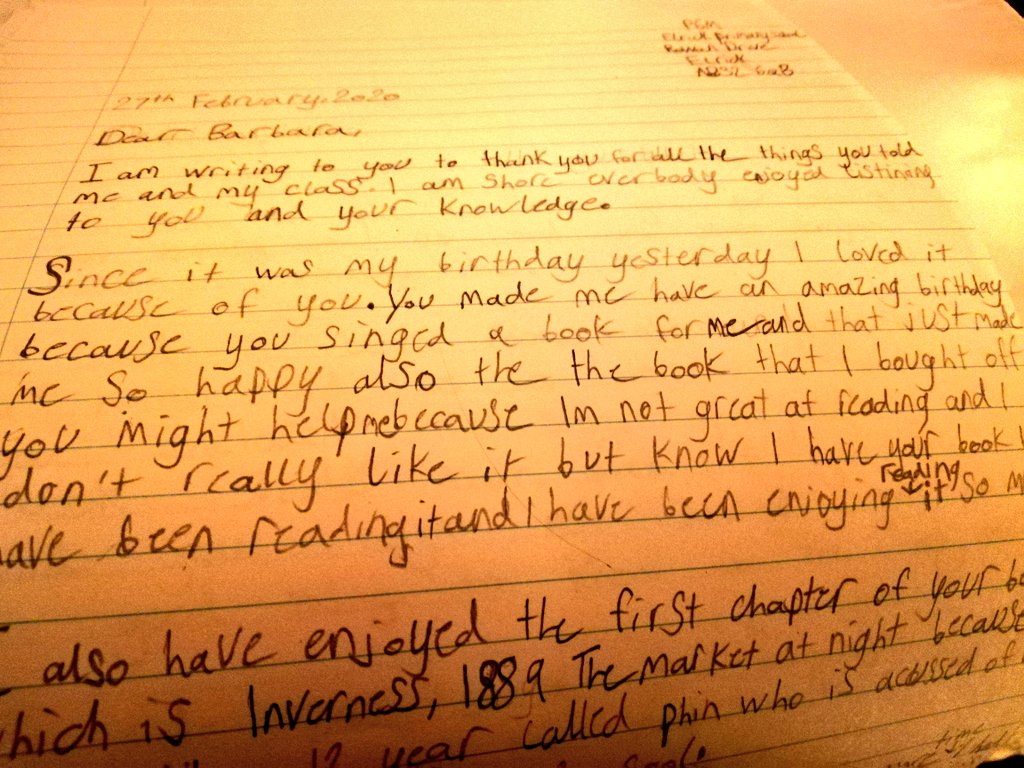 PGM
Elrick primary school
Drive
Elrick
AB32
27th February. 2020
Dear Barbara,
I am writing to you to thank you for all the things you told
me and my class. I am shore everbody enjoyed listining
to you and your knowledge.
Since it was my birthday yesterday I loved it
because of you. You made me have an amazing birthday
because you singed a book for me and that just made
me so happy also the the book that I bought off
you might help me because Im not great at reading and I
don't really like it but know I have your book I
have been reading it and I have been enjoying reading it so
also have enjoyed the first chapter of your
which is Inverness, 1889 The market at night because
12 year called phin who is acussed of